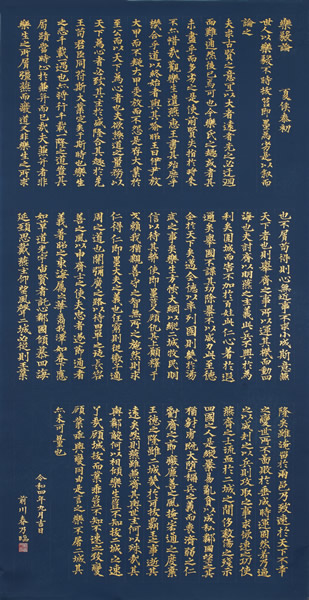 樂毅論　夏侯泰初
世人多以樂毅不時拔莒即墨為劣是以敘而
論之
夫求古賢之意宜以大者遠者先之必迂迴
而難通然後已焉可也今樂氏之趣或者其
未盡乎而多劣之是使前賢失指於將來
不亦惜哉觀樂生遺燕惠王書其殆庶乎
機合乎道以終始者與其喻昭王曰伊尹放
大甲而不疑大甲受放而不怨是存大業於
至公而以天下為心者也夫欲極道之量務以
天下為心者必致其主於盛隆合其趣於先
王苟君臣同符斯大業定矣于斯時也樂生
之志千載一遇也亦將行千載一隆之道豈其
局蹟當時止於兼并而已哉夫兼并者非
樂生之所屑彊燕而廢道又非樂生之所求
也不屑苟得則心無近事不求小成斯意兼
天下者也則舉齊之事所以運其機而動四
海也夫討齊以明燕主之義此兵不興於為
利矣圍城而害不加於百姓此仁心著於遐
邇矣舉國不謀其功除暴不以威力此至德
令於天下矣邁全德以率列國則幾於湯
武之事矣樂生方恢大綱以縱二城牧民明
信以待其弊使即墨莒人顧仇其上願釋干
戈賴我猶親善守之智無所之施然則求
仁得仁即墨大夫之義也任窮則從微子適
周之道也開彌廣之路以待田單之徒長容
善之風以申齊士之志使夫忠者遂節通者
義著昭之東海屬之華裔我澤如春下應
如草道光宇宙賢者託心鄰國傾慕四海
延頸思戴燕主仰望風聲二城必從則王業
隆矣雖淹留於兩邑乃致速於天下不幸
之變世所不圖敗於垂成時運固然若乃逼
之以威劫之以兵則攻取之事求欲速之功使
燕齊之士流血於二城之間侈殺傷之殘示
四國之人是縱暴易亂貪以成私鄰國望之其
猶豺虎既大墮稱兵之義而喪濟弱之仁
虧齊士之節廢廉善之風掩宏通之度棄
王德之隆雖二城幾於可拔霸王之事逝其
遠矣然則燕雖兼齊其與世主何以殊哉其
與鄰敵何以相傾樂生豈不知拔二城之速
了哉顧城拔而業乖豈不知不速之致變
顧業乖與變同由是言之樂生不屠二城其
亦未可量也
令和四年九月吉日
前川春乃臨